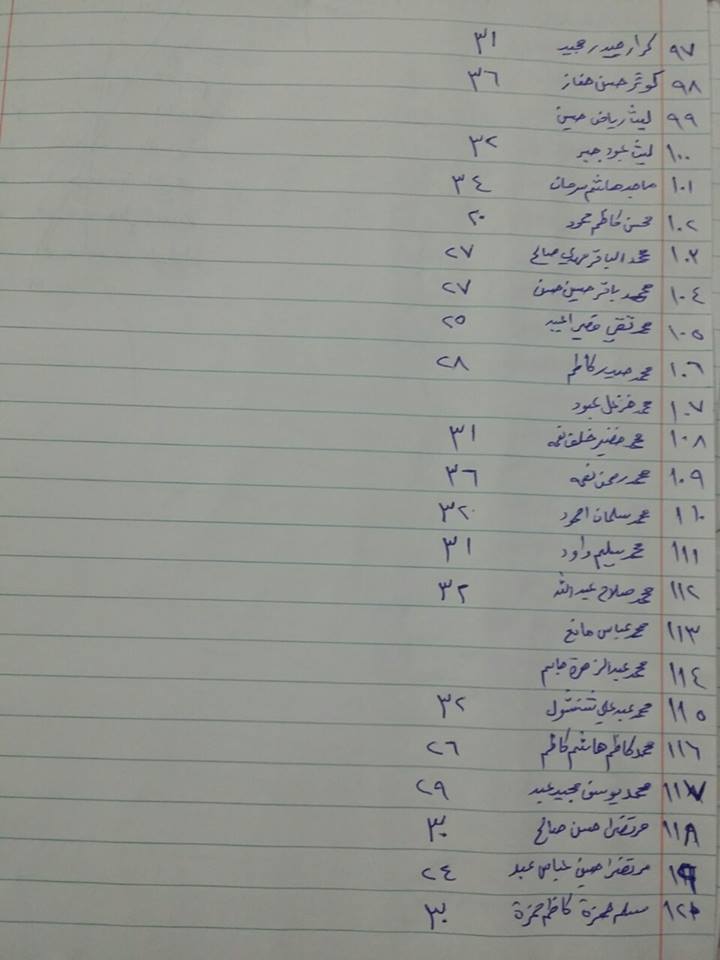 ٩٧ كرار حيدر مجيد ٣١
٩٨ كوثر حسن ٣٦
٩٩ ليث رياض حسين
١٠٠ ليث عبود جبر ٣٢
١٠١ ماجد هاشم سرحان ٣٤
١٠٢ محسن كاظم حمود ٢٠
١٠٣ محمد الباقر مهدي صالح ٢٧
١٠٤ محمد باقر حسين حسن ٢٧
١٠٥ محمد تقي ٢٥
١٠٦ محمد حيدر كاظم ٢٨
١٠٧ محمد خزعل عبود
١٠٨ محمد خضير خلف نعمه ٣١
١٠٩ محمد رحمن نعمه ٣٦
١١٠ محمد سلمان ٣٢
١١١ محمد سليم داود ٣١
١١٢ محمد صلاح عبد الله ٣٢
١١٣ محمد عباس مانع
١١٤ محمد عبد الزهرة جاسم
١١٥ محمد عبد علي شنشول ٣٢
١١٦ محمد كاظم هاشم كاظم ٢٦
١١٧ محمد يوسف مجيد عبد ٢٩
١١٨ مرتضى حسن صالح ٣٠
١١٩ مرتضى حسين عباس عبد ٢٤
١٢٠ مسلم حمزة كاظم حمزة ٣٠